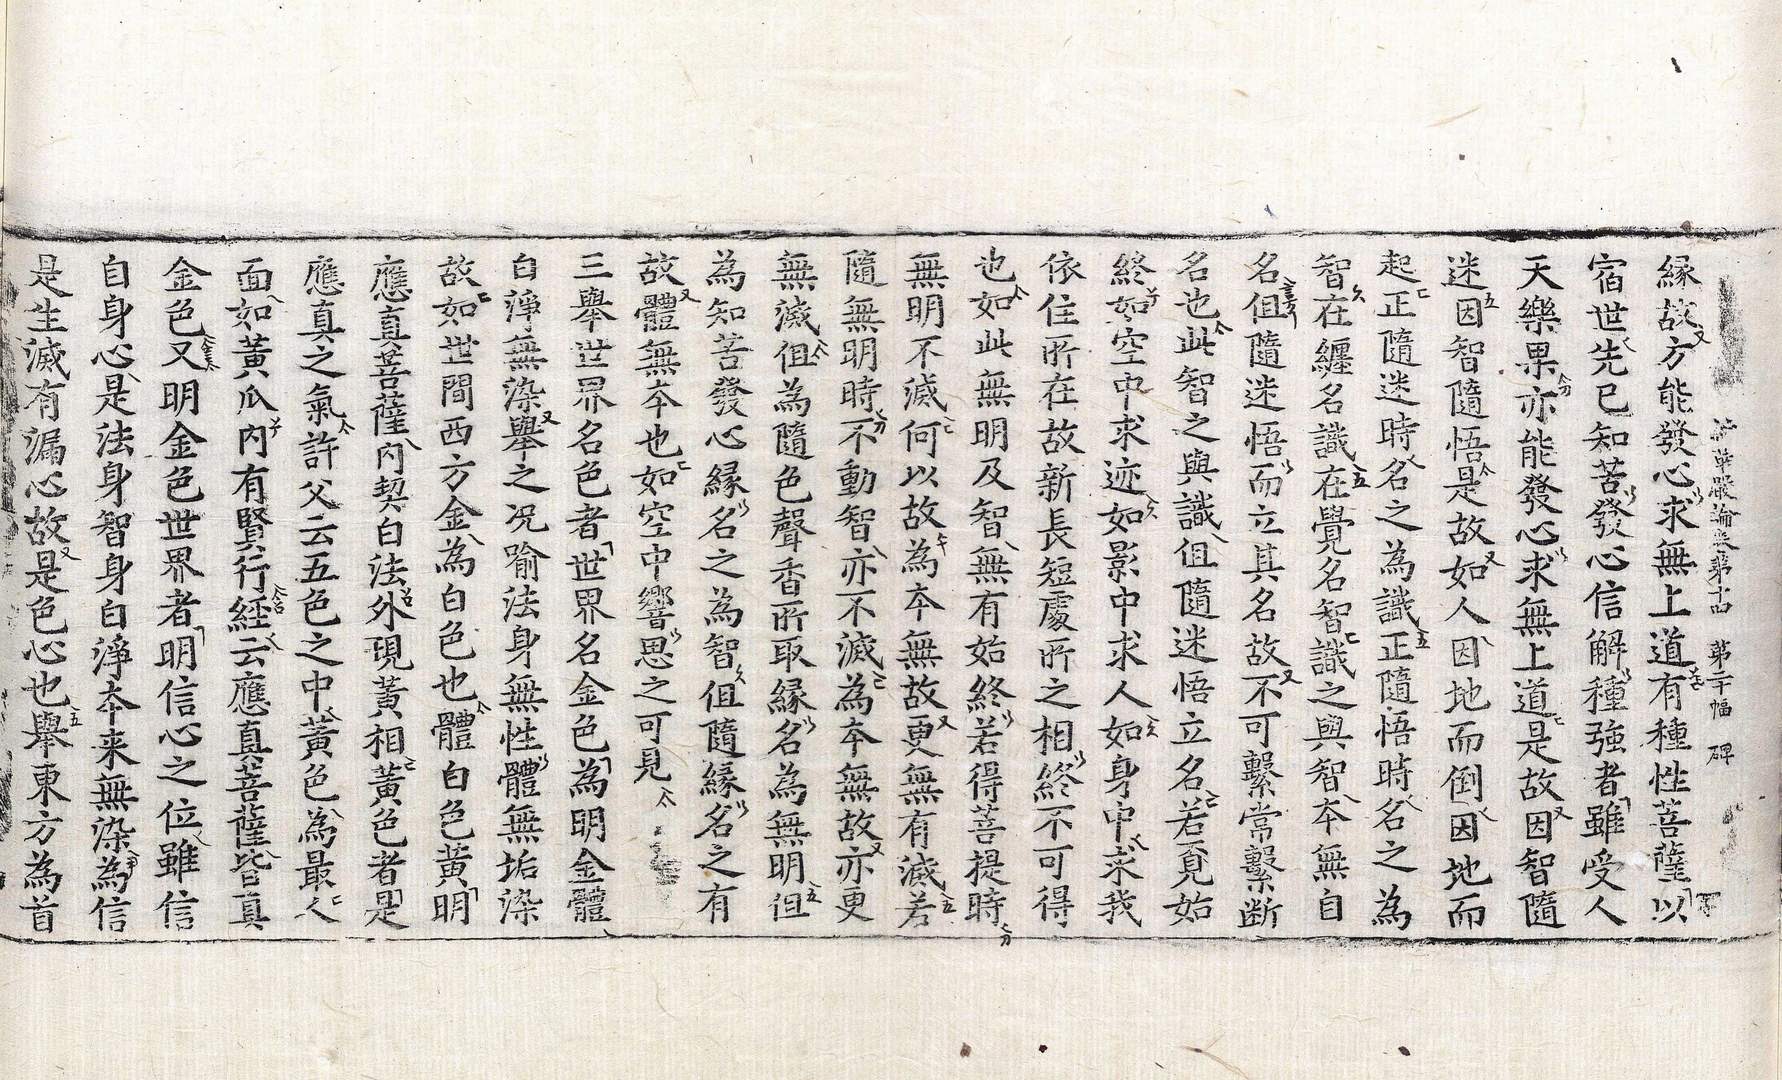 論卷第十四　第二十幅　碑
緣故方能發心求無上道有種性菩薩以
宿世先已知苦發心信解種強者雖受人
天樂果亦能發心求無上道是故因智隨
迷因智隨悟是故如人因地而倒因地而
起正隨迷時名之為識正隨悟時名之為
智在纏名識在覺名智識之與智本無自
名但隨迷悟而立其名故不可繫常繫斷
名也此智之與識但隨迷悟立名若覓始
終如空中求迹如影中求人如身中求我
依住所在故新長短處所之相終不可得
也如此無明及智無有始終若得菩提時
無明不滅何以故為本無故更無有滅若
隨無明時不動智亦不滅為本無故亦更
無滅但為隨色聲香所取緣名為無明但
為知苦發心緣名之為智但隨緣名之有
故體無本也如空中響思之可見
三舉世界名色者世界名金色為明金體
白淨無染舉之況喻法身無性體無垢染
故如世間西方金為白色也體白色黃明
應真菩薩內契白法外現黃相黃色者是
應真之氣許父云五色之中黃色為最人
面如黃瓜內有賢行經云應真菩薩皆真
金色又明金色世界者明信心之位雖信
自身心是法身智身白淨本来無染為信
是生滅有漏心故是色心也舉東方為首